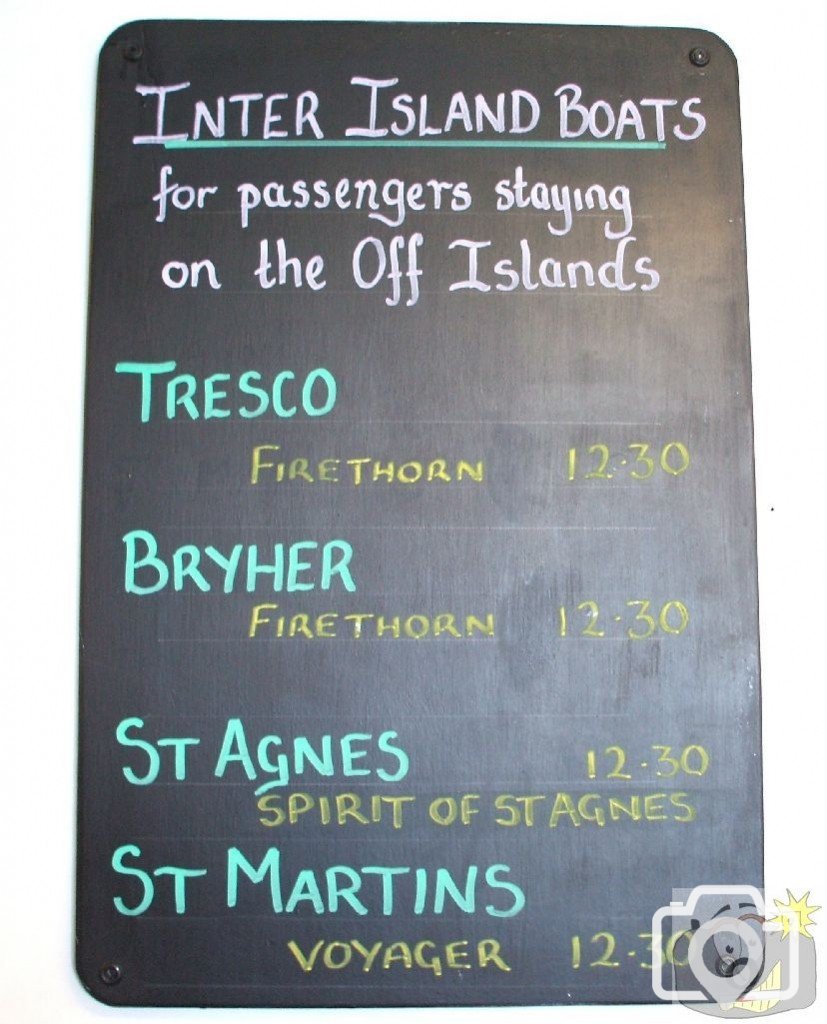 INTER ISLAND BOATS
for passengers staying
on the Off Islands
TRESCO
FIRETHORN 12.30
BRYHER
FIRETHORN 12.30
ST AGNES 12.30
SPIRIT OF ST AGNES
ST MARTINS
VOYAGER 12.30